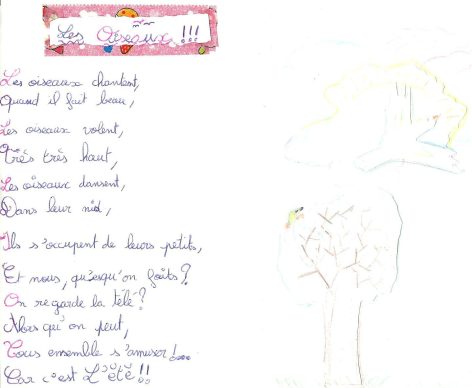 Les Oiseaux !!!
Les oiseaux chantent,
Quand il fait beau,
Les oiseaux volent,
Très très haut,
Les oiseaux dansent,
Dans leur nid,
Ils s'occupent de leurs petits,
Et nous, qu'esqu'on faîts ?
On regarde la télé ?
Alors qu'on peut,
Tous ensemble s'amuser !...
Car c'est L'été !!